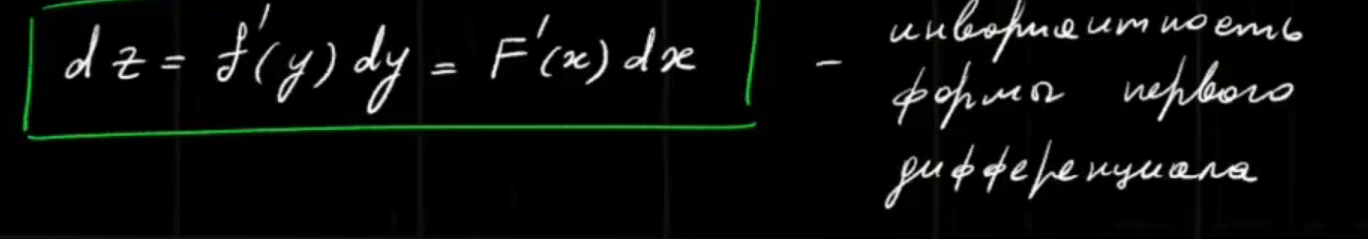 dz = f'(y) dy = F'(x) dx
- инвариантность
формы первого
дифференциала